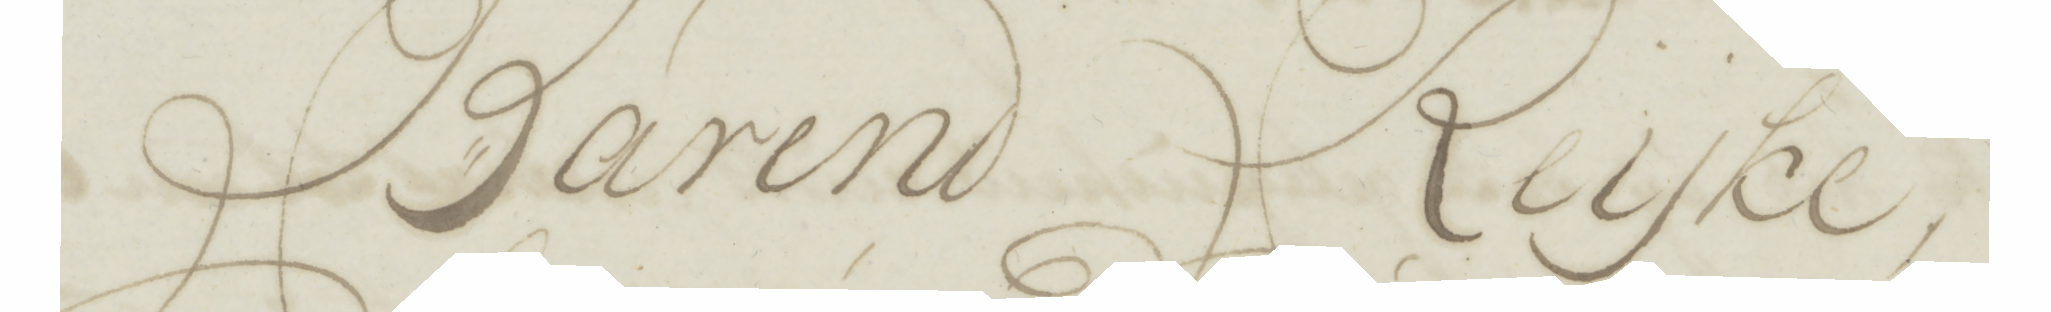 Barend Reijke,